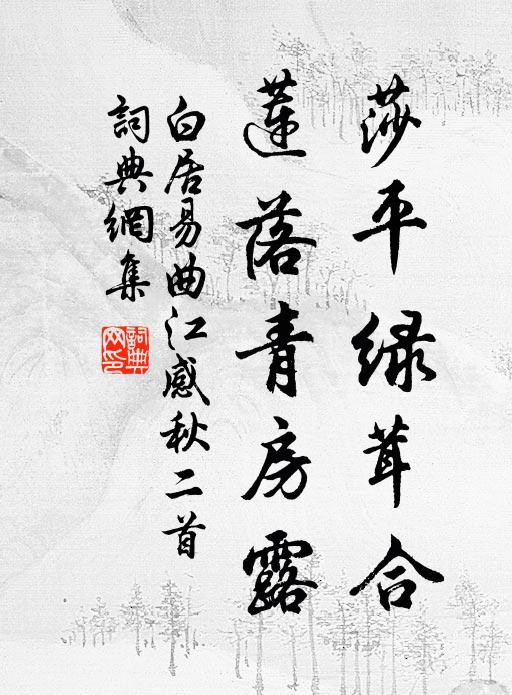 莎平绿茸合
莲落青房露
白居易曲江感秋二首
詞典網集
詞典網印